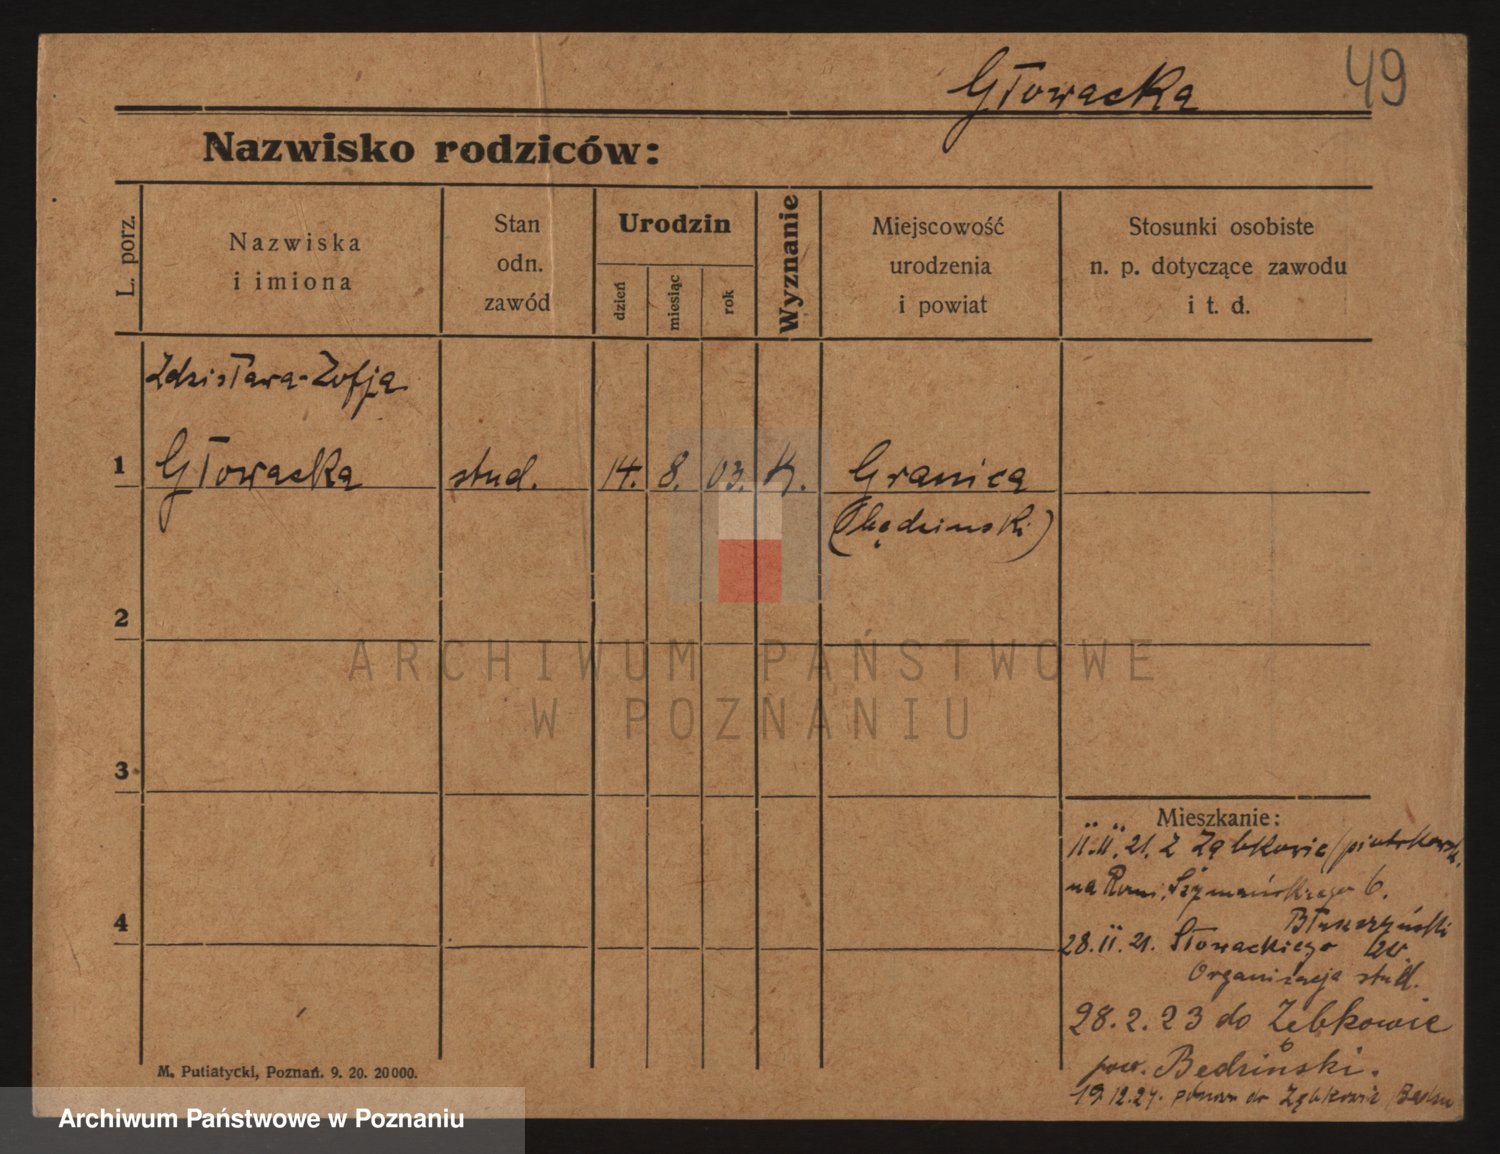 Głowacka 49
Nazwisko rodziców:
L. porz.
Nazwiska
i imiona
Stan
odn.
zawód
Urodzin
dzień
miesiąc
rok
Wyznanie
Miejscowość
urodzenia
i powiat
Stosunki osobiste
n. p. dotyczące zawodu
i t. d.
Zdzisława-Zofja
1 Głowacka stud. 14. 8. 03. K. Granica
(Będzinski)
2
ARCHIWUM PAŃSTWOWE
W POZNANIU
3
Mieszkanie:
11.II.21. z Ząbkowic (piotrkowsk.
na Rom. Szymańskiego 6.
4
28.II.21. Słowackiego
Organizacja stud.
28.2.23 do Zębkowic
pow. Bedzinski.
19.12.24. do Ząbkowic
M. Putiatycki, Poznań. 9. 20. 20000.
Archiwum Państwowe w Poznaniu